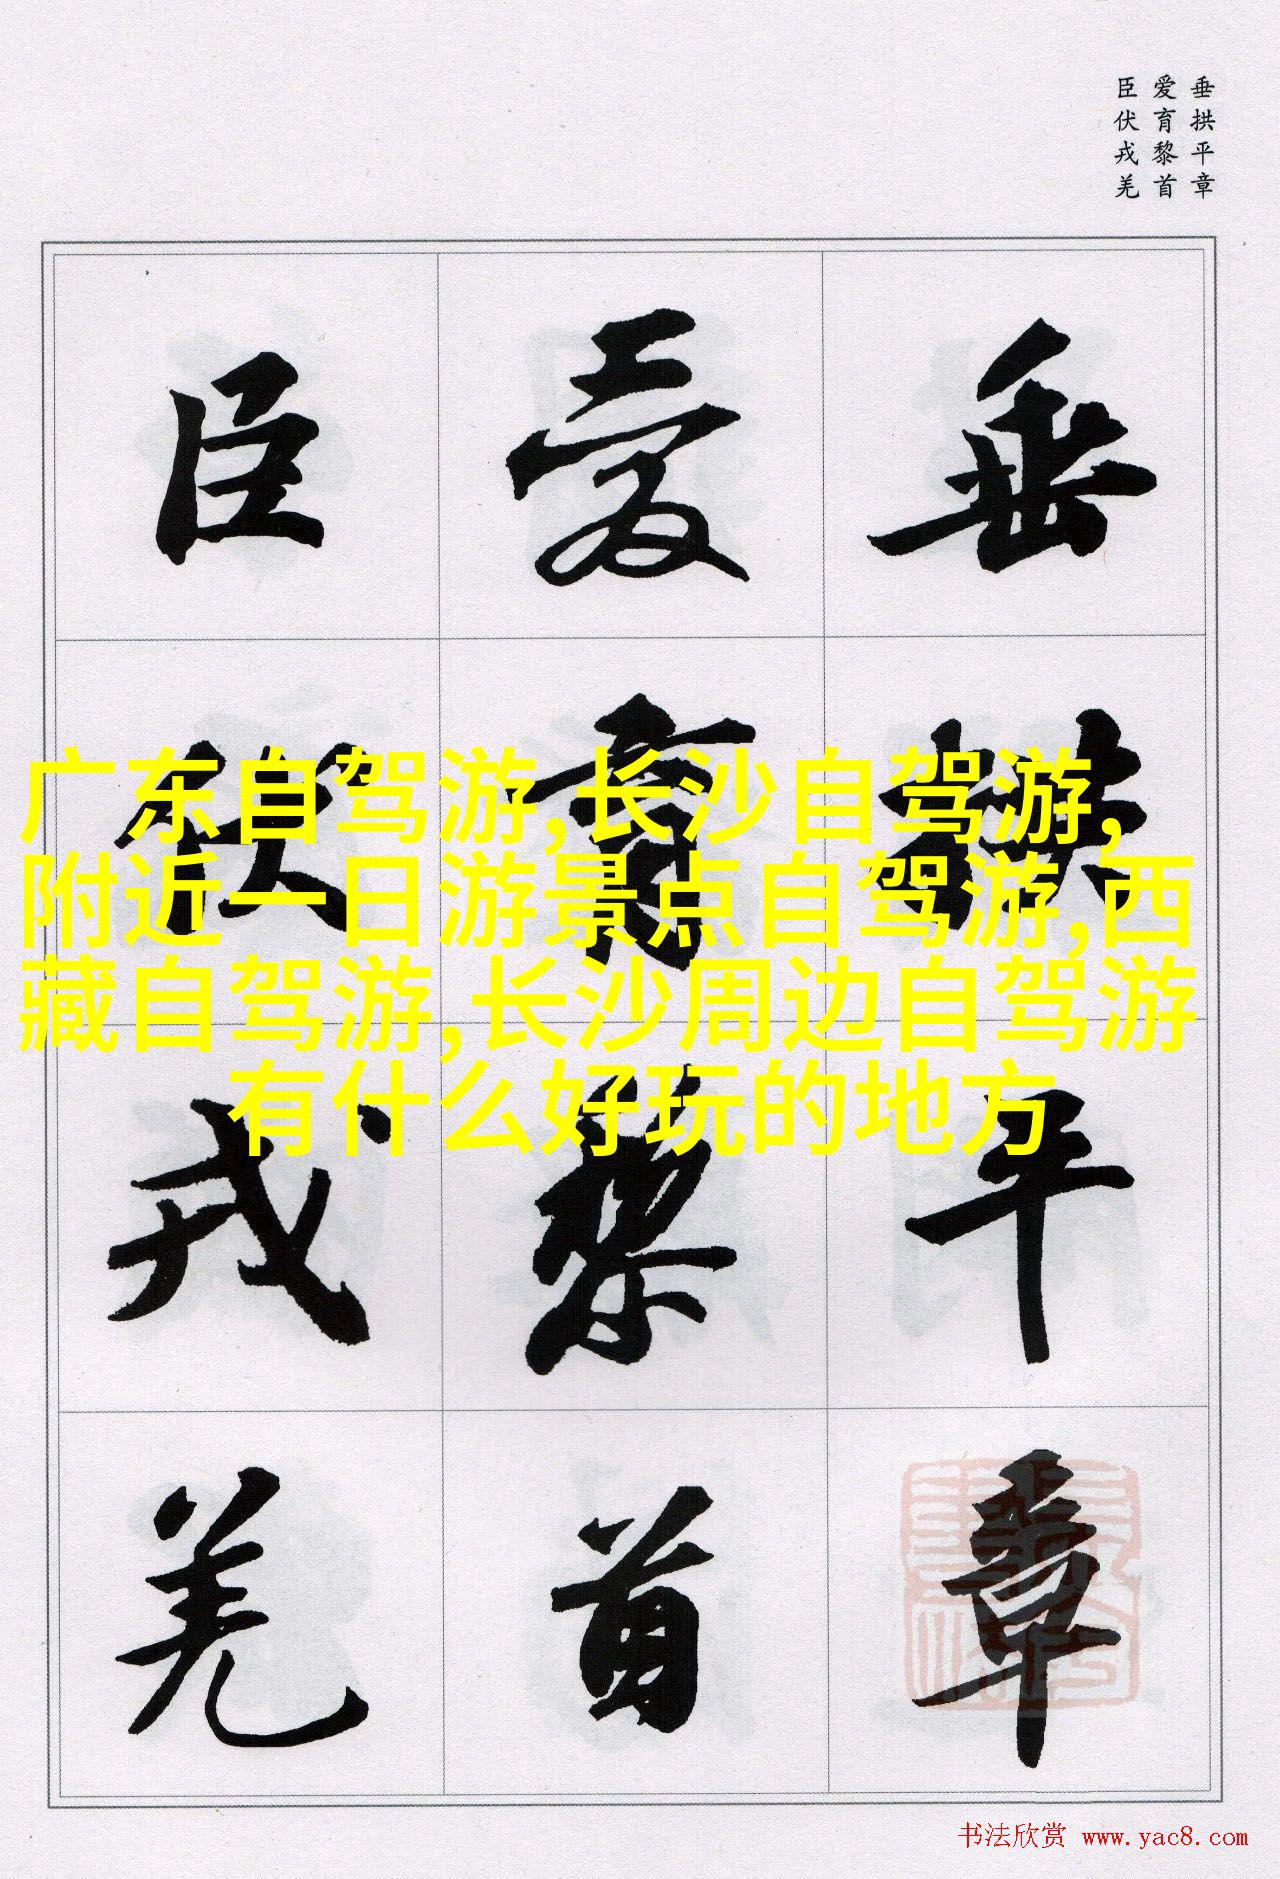 垂拱平章
爱育黎首
臣伏戎羌
垂拱平章
爱育黎首
臣伏戎羌
广东自驾游,长沙自驾游,
附近一日游景点自驾游,西
藏自驾游,长沙周边自驾游
有什么好玩的地方
书法欣赏 www.yac8.com